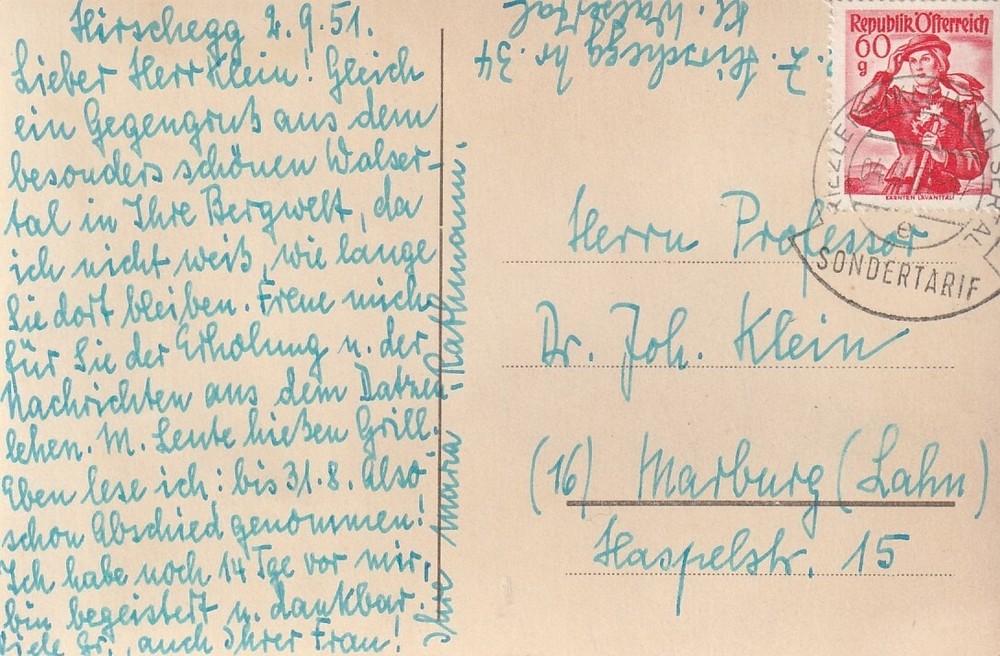 Hirschegg 2.9.51.
Lieber Herr Klein! Gleich
ein Gegengruß aus dem
besonders schönen Walser-
tal in Ihre Bergwelt, da
ich nicht weiß, wie lange
Sie dort bleiben. Freue mich
für Sie der Erholung u. der
Nachrichten aus dem Datzen-
lehen. M. Leute hießen Grill.
Eben lese ich: bis 31.8. Also
schon Abschied genommen!
Ich habe noch 14 Tge vor mir,
bin begeistert u. dankbar.
Viele Gr., auch Ihrer Frau!
Ihre Maria Rathmann.
z. Z. Hirschegg Nr. 34
Kl. Walsertal
Republik Österreich
60
g
KÄRNTEN LAVANTTAL
SONDERTARIF
e
Herrn Professor
Dr. Joh. Klein
(16) Marburg (Lahn)
Haspelstr. 15